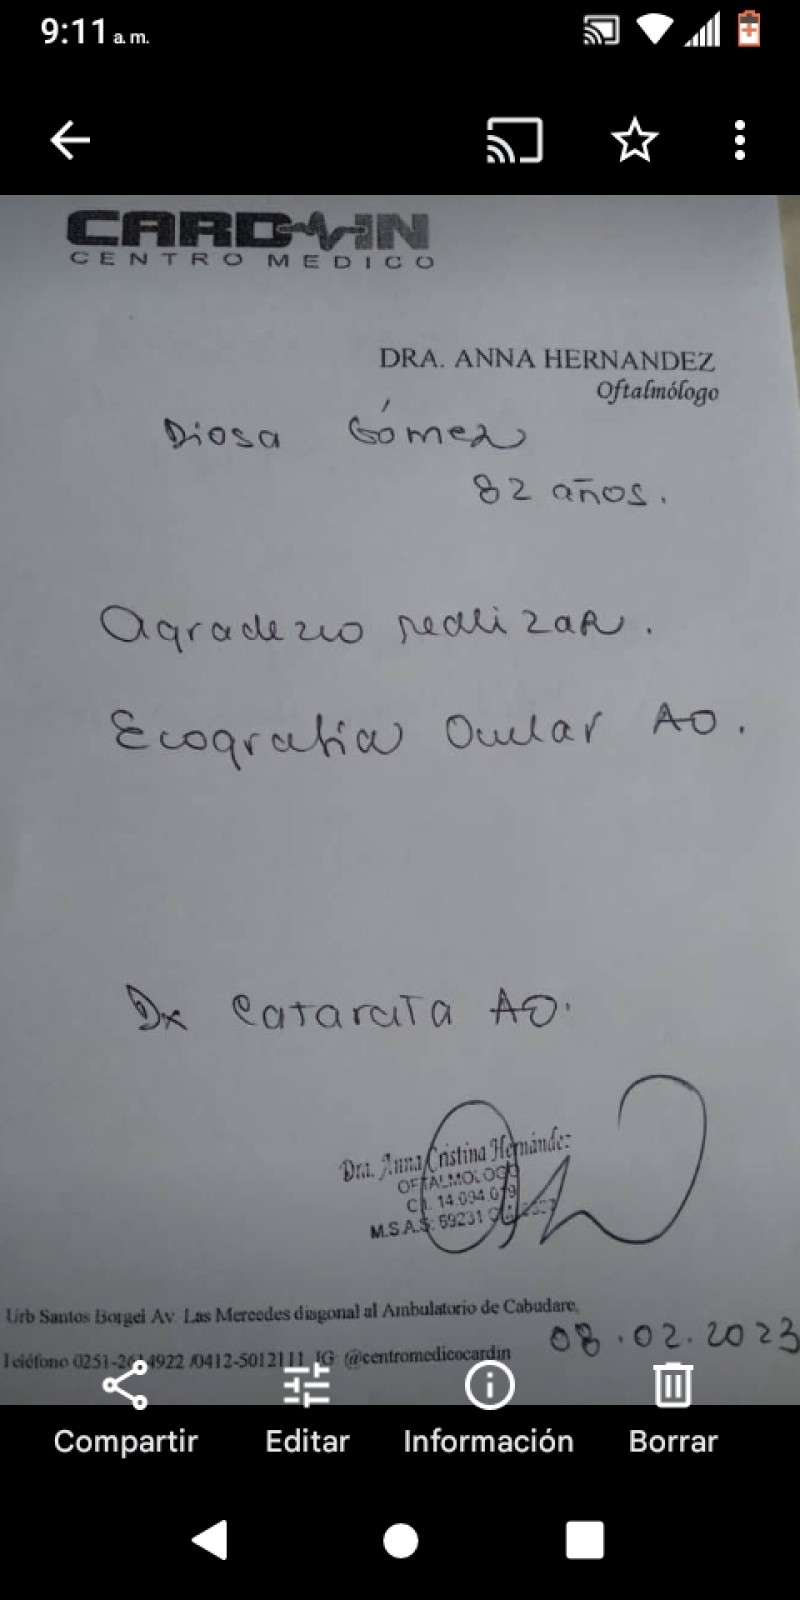 9:11 a. m.
CARDIN
CENTRO MEDICO
DRA. ANNA HERNANDEZ
Oftalmólogo
Diosa Gómez
82 años.
Agradezco realizar.
Ecografia Ocular AO.
Dx Catarata AO.
Dra. Anna Cristina Hernández
OFTALMOLOGO
C.I. 14.094.079
M.S.A.S: 59231
Urb Santos Borgei Av. Las Mercedes diagonal al Ambulatorio de Cabudare,
08.02.2023
Teléfono 0251- 4922 /0412-5012111 IG: @centromedicocardin
Compartir Editar Información Borrar